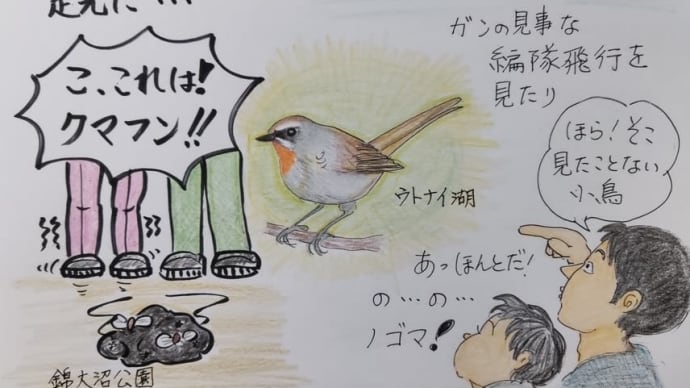 足元に・・・
こ、これは！
クマフン！！
錦大沼公園
ウトナイ湖
ガンの見事な
編隊飛行を
見たり
ほら！そこ
見たことない
小鳥
あっほんとだ！
の…の…
ノゴマ！